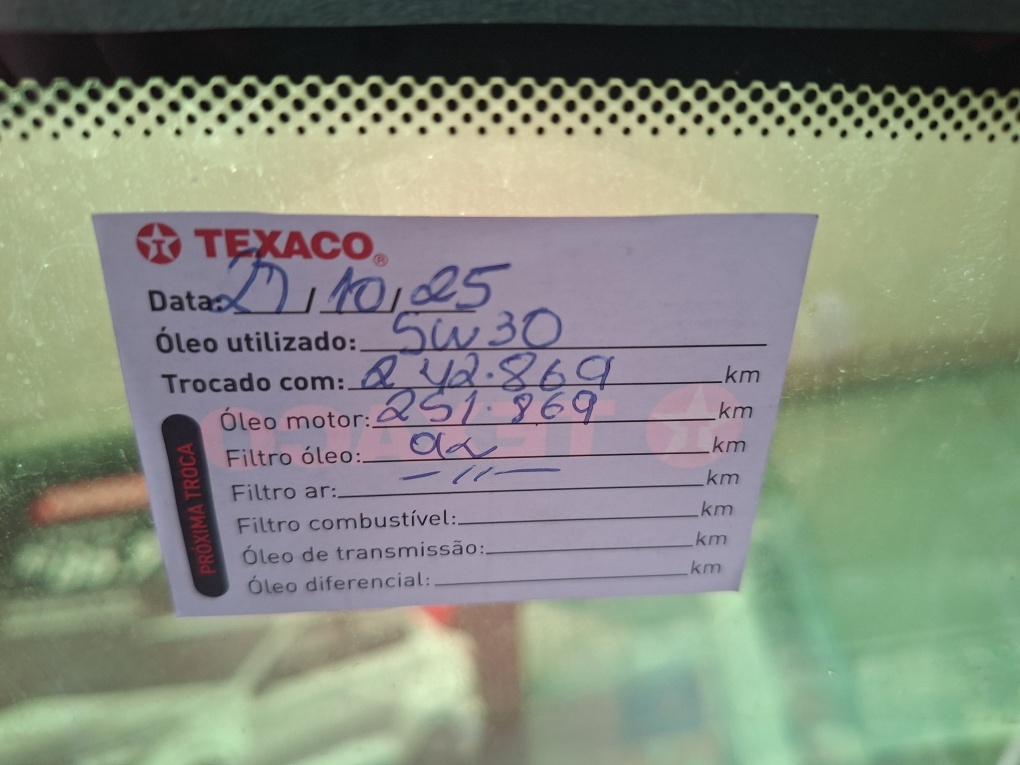 TEXACO®
Data: 27/10/25
Óleo utilizado: 5W30
Trocado com: 242.869 km
Óleo motor: 251.869 km
Filtro óleo: km
Filtro ar: -11- km
Filtro combustível: km
Óleo de transmissão: km
Óleo diferencial: km
PRÓXIMA TROCA